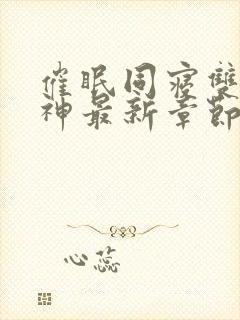 催眠同寝雙
神最新章節
心蕊